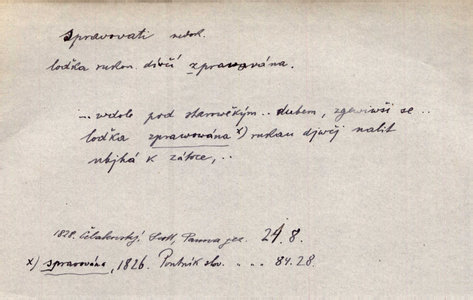 spravovati nedok.
loďka rukou dívčí zpravována.
... vtdole pod starowěkým .. dubem, zgewiwši se ..
loďka zprawowána x) rukau djwčj
ubjhá k zátoce, ..
1828. Čelakovský. Scott, Panna jez. 24. 8.
x) sprawowána, 1826. Poutník slov. .... 84. 28.